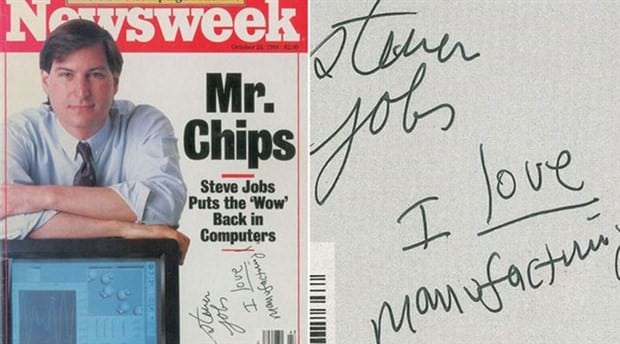 Newsweek
October 24, 1988 : $2.00
Mr.
Chips
Steve Jobs
Puts the 'Wow'
Back in
Computers
steven
jobs
I love
manufacturing
steven
jobs
I love
manufacturing